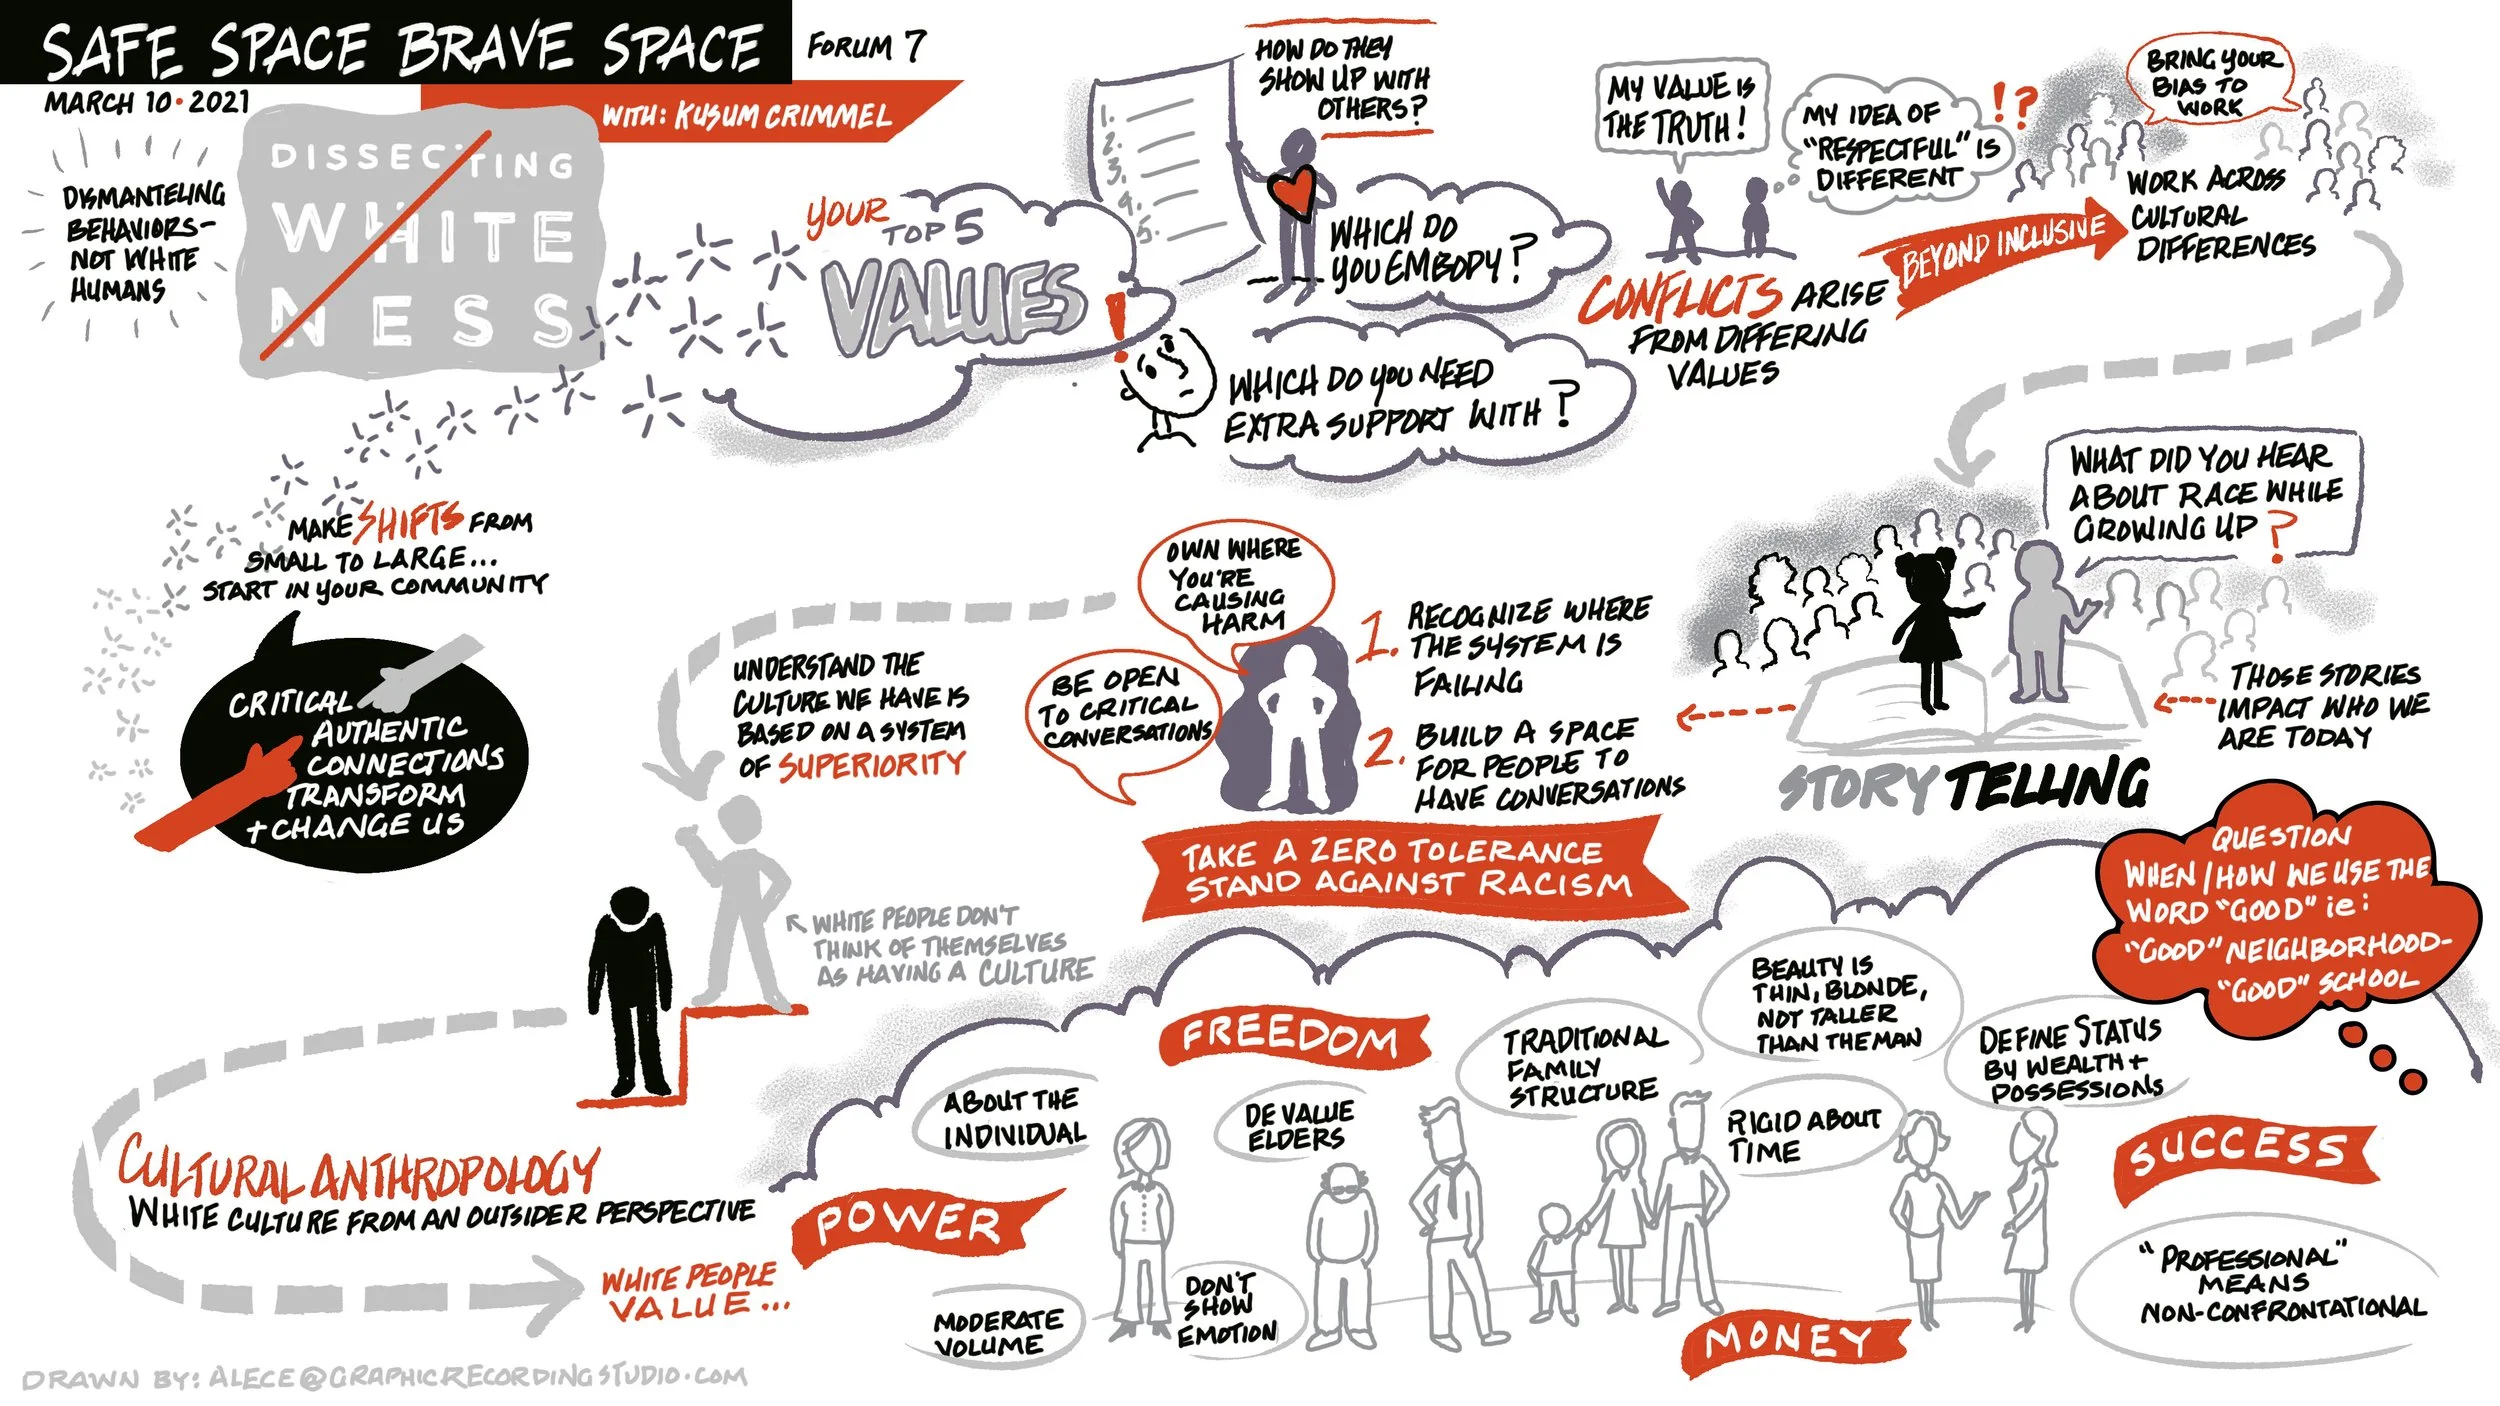 SAFE SPACE BRAVE SPACE
FORUM 7
MARCH 10 • 2021
WITH: KUSUM CRIMMEL
DISMANTELING
BEHAVIORS-
NOT WHITE
HUMANS
DISSECTING
WHITE
NESS
YOUR
TOP 5
VALUES
!
1.
2.
3.
4.
5.
HOW DO THEY
SHOW UP WITH
OTHERS?
WHICH DO
YOU EMBODY?
WHICH DO YOU NEED
EXTRA SUPPORT WITH?
MY VALUE IS
THE TRUTH!
MY IDEA OF
"RESPECTFUL" IS
DIFFERENT
!?
CONFLICTS ARISE
FROM DIFFERING
VALUES
BEYOND INCLUSIVE
BRING YOUR
BIAS TO
WORK
WORK ACROSS
CULTURAL
DIFFERENCES
WHAT DID YOU HEAR
ABOUT RACE WHILE
GROWING UP?
THOSE STORIES
IMPACT WHO WE
ARE TODAY
STORYTELLING
OWN WHERE
YOU'RE
CAUSING
HARM
BE OPEN
TO CRITICAL
CONVERSATIONS
1. RECOGNIZE WHERE
THE SYSTEM IS
FAILING
2. BUILD A SPACE
FOR PEOPLE TO
HAVE CONVERSATIONS
TAKE A ZERO TOLERANCE
STAND AGAINST RACISM
UNDERSTAND THE
CULTURE WE HAVE IS
BASED ON A SYSTEM
OF SUPERIORITY
WHITE PEOPLE DON'T
THINK OF THEMSELVES
AS HAVING A CULTURE
MAKE SHIFTS FROM
SMALL TO LARGE...
START IN YOUR COMMUNITY
CRITICAL
AUTHENTIC
CONNECTIONS
TRANSFORM
+ CHANGE US
CULTURAL ANTHROPOLOGY
WHITE CULTURE FROM AN OUTSIDER PERSPECTIVE
WHITE PEOPLE
VALUE...
QUESTION
WHEN/HOW WE USE THE
WORD "GOOD" ie:
"GOOD" NEIGHBORHOOD-
"GOOD" SCHOOL
FREEDOM
POWER
ABOUT THE
INDIVIDUAL
DE VALUE
ELDERS
TRADITIONAL
FAMILY
STRUCTURE
BEAUTY IS
THIN, BLONDE,
NOT TALLER
THAN THE MAN
RIGID ABOUT
TIME
DEFINE STATUS
BY WEALTH +
POSSESSIONS
SUCCESS
MODERATE
VOLUME
DON'T
SHOW
EMOTION
MONEY
"PROFESSIONAL"
MEANS
NON-CONFRONTATIONAL
DRAWN BY: ALECE@GRAPHICRECORDINGSTUDIO.COM